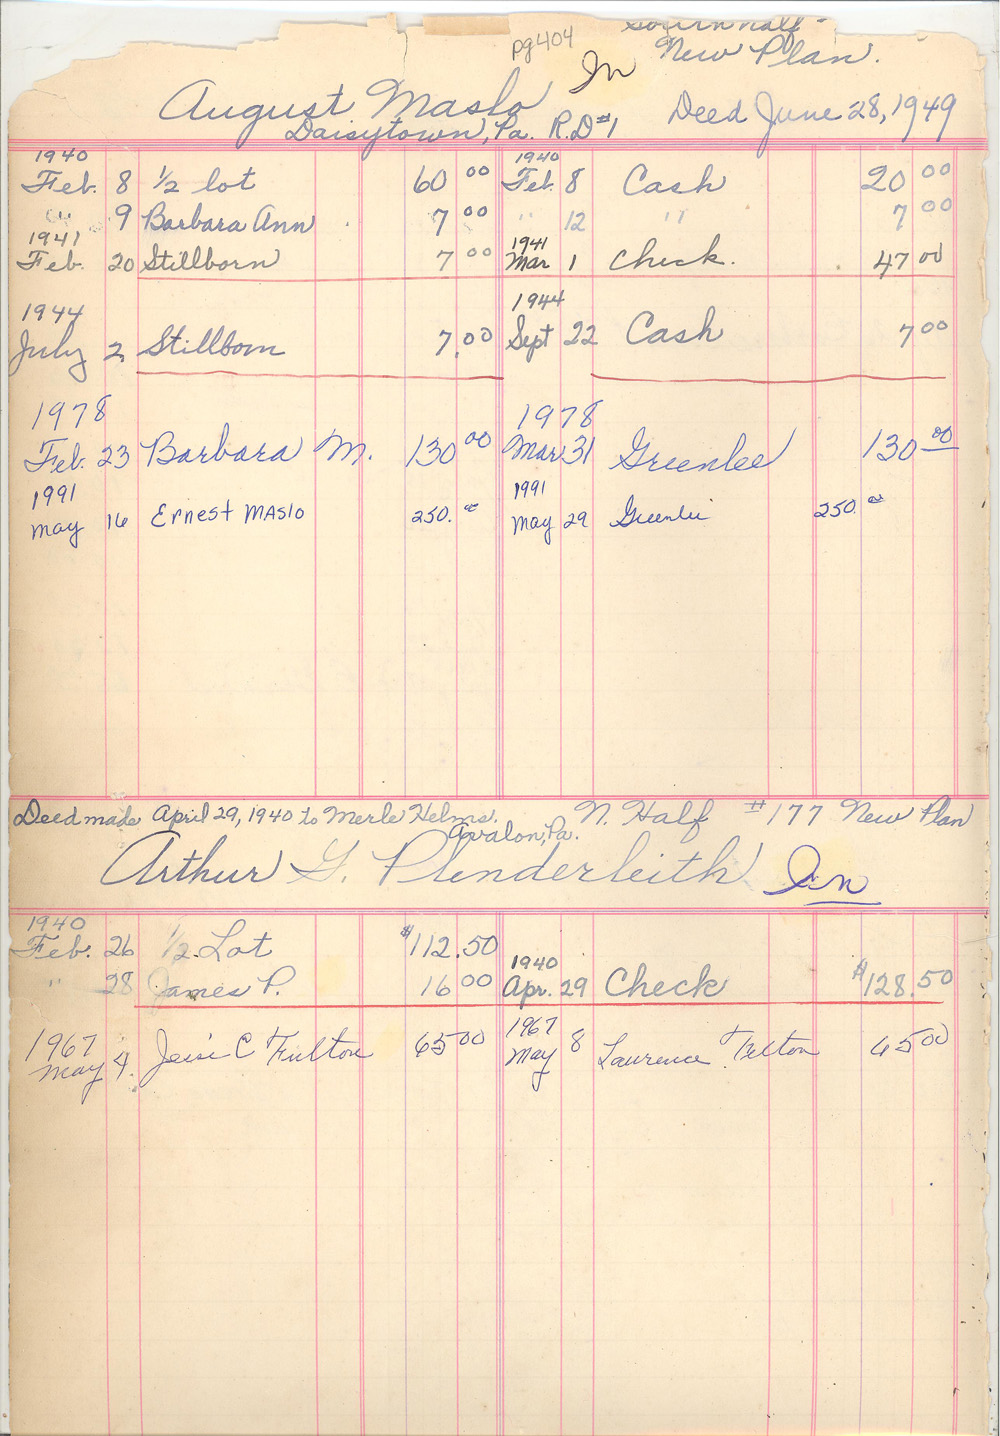 pg 404
South half
In New Plan.
August Maslo Deed June 28, 1949
Daisytown, Pa. R.D #1
1940 1940
Feb. 8 1/2 lot 60 00 Feb. 8 Cash 20 00
" 9 Barbara Ann 7 00 " 12 " 7 00
1941 1941
Feb. 20 Stillborn 7 00 Mar 1 Check. 47 00
1944 1944
July 2 Stillborn 7.00 Sept 22 Cash 7 00
1978 1978
Feb. 23 Barbara M. 130 00 Mar 31 Greenlee 130 00
1991 1991
May 16 Ernest Maslo 250. 00 May 29 Greenlee 250. 00
Deed made April 29, 1940 to Merle Helms. N. Half #177 New Plan
Avalon, Pa.
Arthur G. Plenderleith In
1940
Feb. 26 1/2 Lot $112.50
1940
" 28 James P. 16 00 Apr. 29 Check $128.50
1967 1967
May 4 C Fulton 65 00 May 8 Laurence 65 00